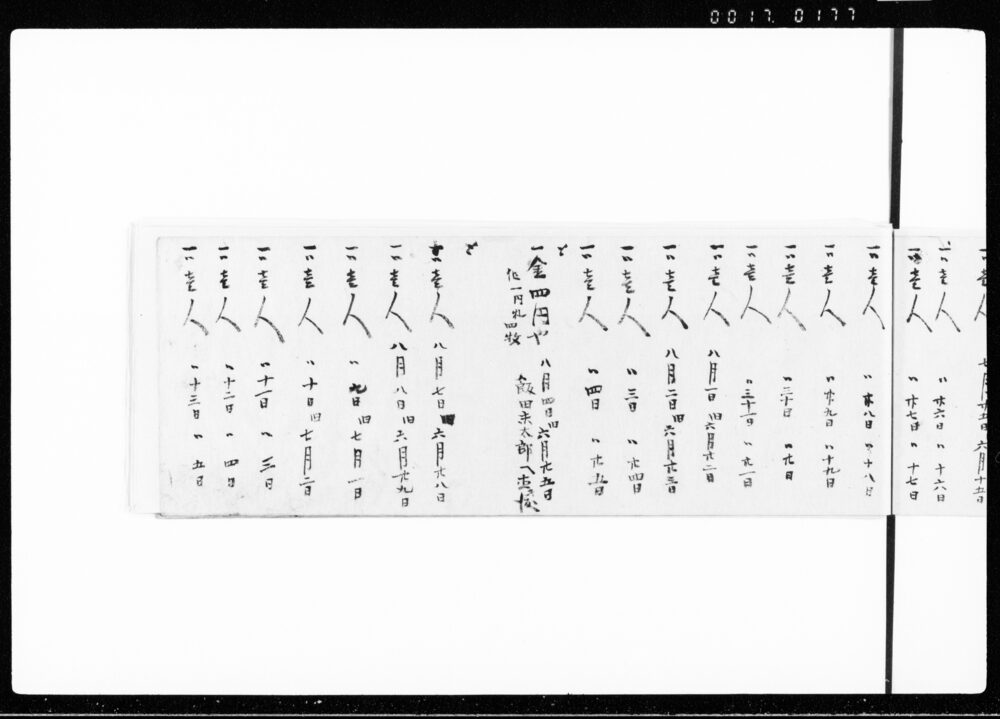 0017 0177
一〃壱人 七月廿五日 六月十五日
一〃壱人 〃 廿六日 〃 十六日
一〃壱人 〃 廿七日 〃 十七日
一〃壱人 〃 廿八日 〃 十八日
一〃壱人 〃 廿九日 〃 十九日
一〃壱人 〃 三十日 〃 廿日
一〃壱人 〃 三十一日 〃 廿一日
一〃壱人 八月一日 旧六月廿二日
一〃壱人 八月二日 旧六月廿三日
一〃壱人 〃 三日 〃 廿四日
一〃壱人 〃 四日 〃 廿五日
〆
一金四円也 八月四日 旧六月廿五日
但一円札四牧 飯田末太郎へ
〆
一〃壱人 八月七日 旧六月廿八日
一〃壱人 八月八日 旧六月廿九日
一〃壱人 〃 九日 旧七月一日
一〃壱人 〃 十日 旧七月二日
一〃壱人 〃 十一日 〃 三日
一〃壱人 〃 十二日 〃 四日
一〃壱人 〃 十三日 〃 五日